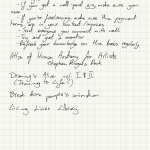 - If you get a cold good gig, make sure your
- If you're freelancing, make sure the payment
terms are in your contract /invoices
- Text everyone you connect with cell
- Try and get a mentor
- Refresh your knowledge on the basics regularly
Atlas of Human Anatomy for Artists
Stephen Rogers Peck
Drawing's Alive vol I & II
(Drawing to Life?)
Break down people's animation
Living Lines Library